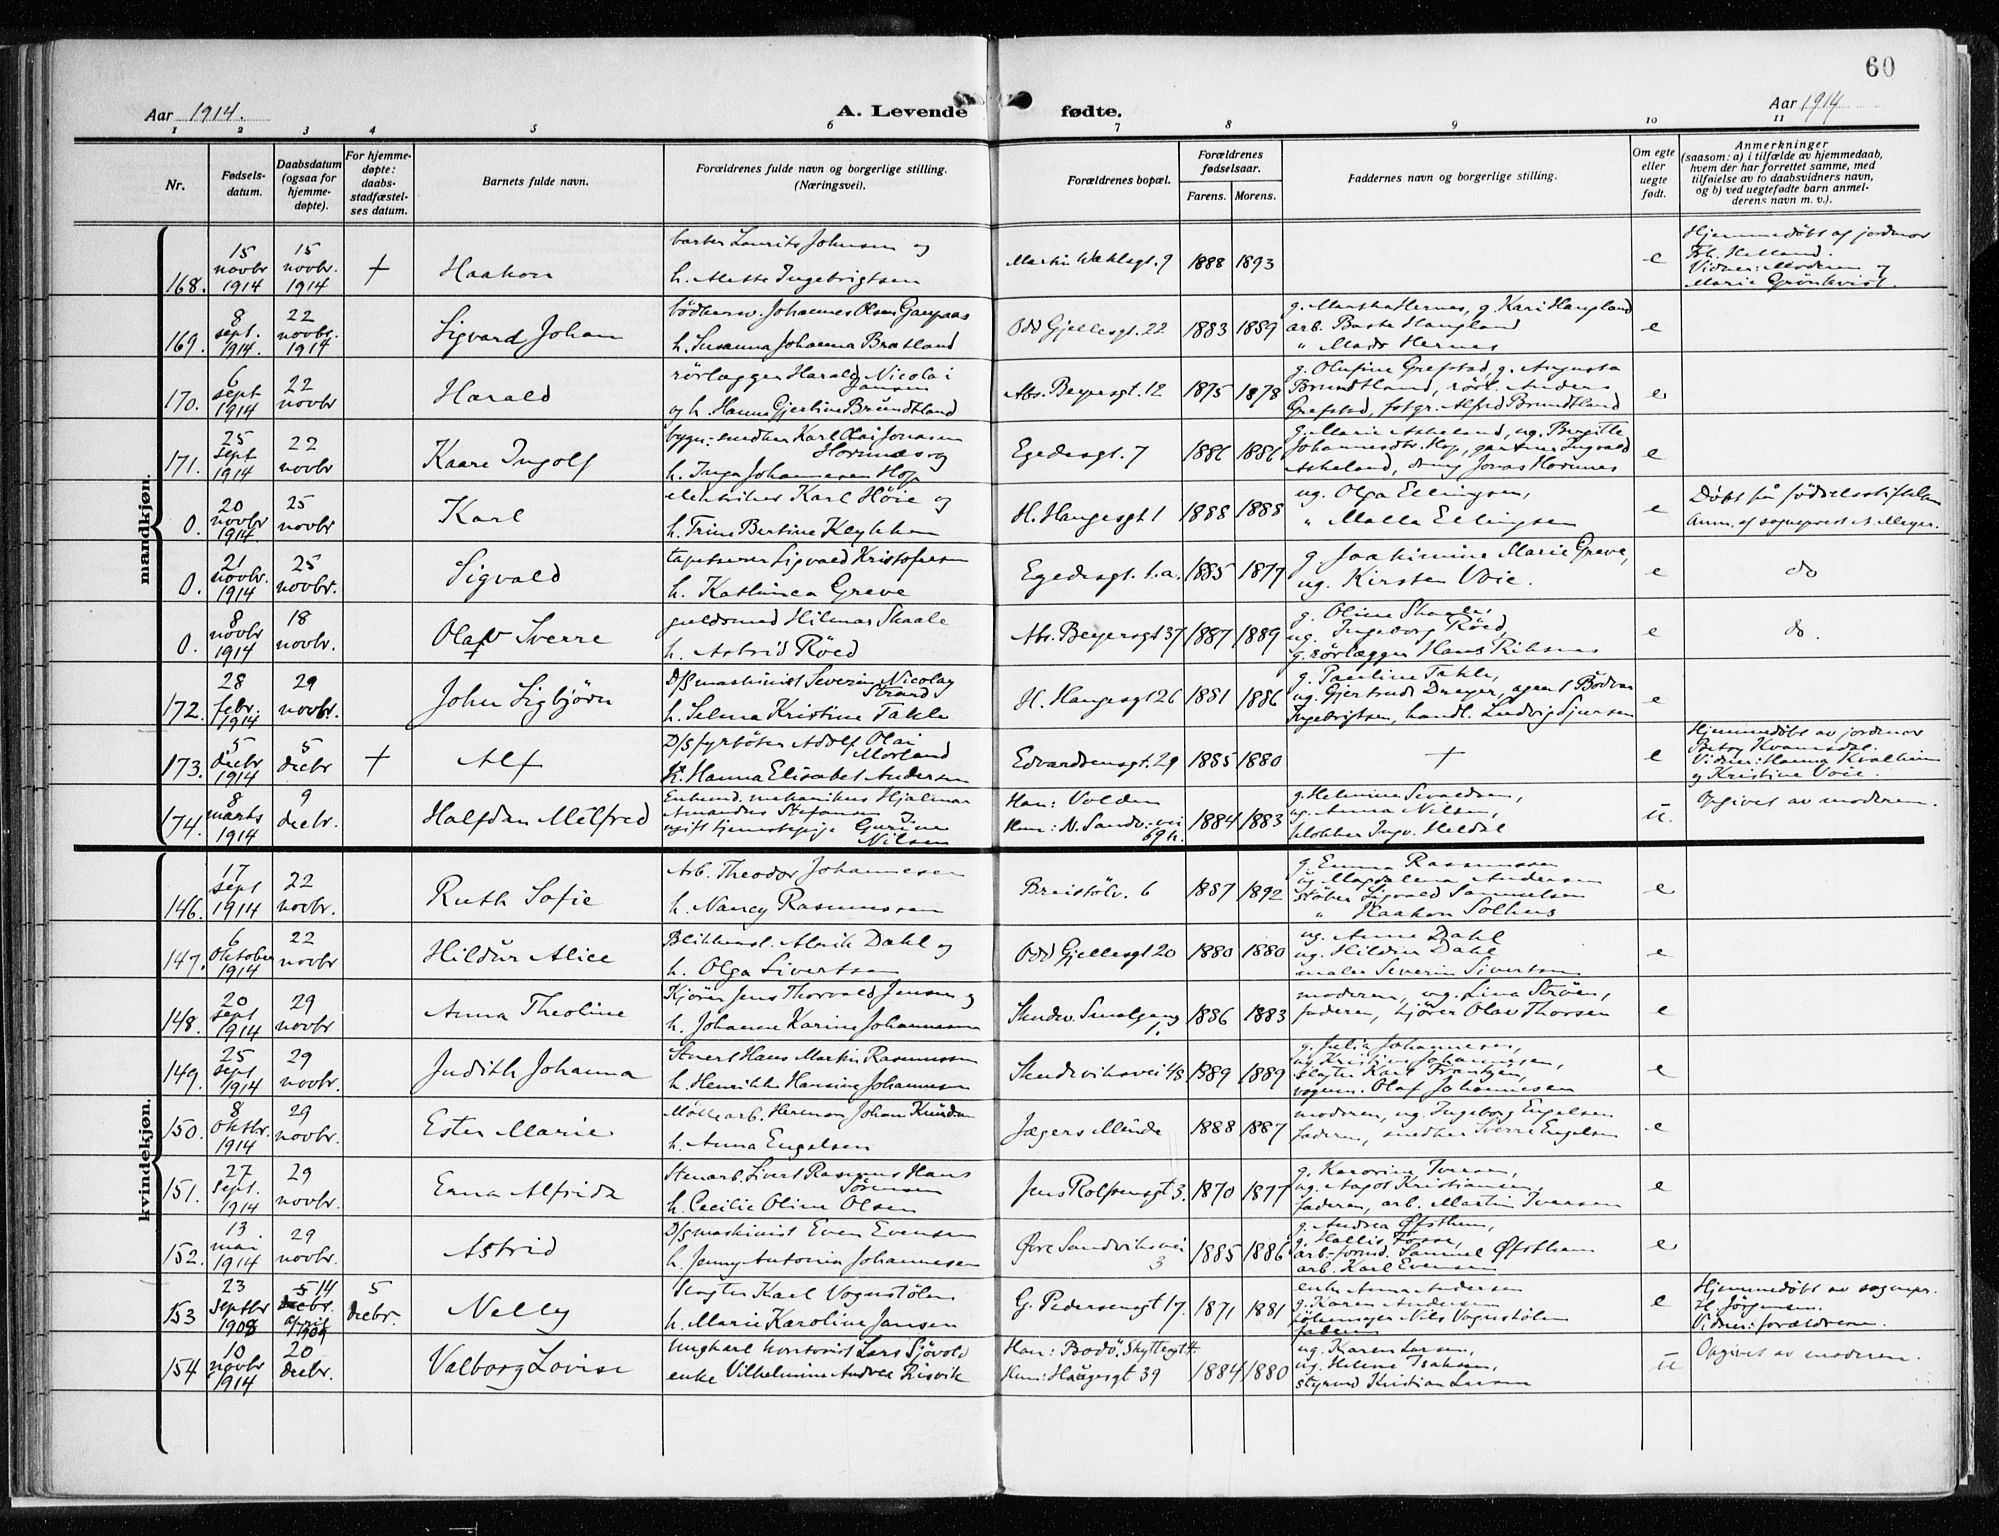 60
Aar 1914.
A. Levende fødte.
Aar 1914
1 2 3 4 5 6 7 8 9 10 11
Nr.
Fødsels-
datum.
Daabsdatum
(ogsaa for
hjemme-
døpte).
For hjemme-
døpte:
daabs-
stadfæstel-
ses datum.
Barnets fulde navn.
Forældrenes fulde navn og borgerlige stilling.
(Næringsvei).
Forældrenes bopæl.
Forældrenes
fødselsaar.
Farens. Morens.
Faddernes navn og borgerlige stilling.
Om egte
eller
uegte
født.
Anmerkninger
(saasom: a) i tilfælde av hjemmedaab,
hvem der har forrettet samme, med
tilføielse av to daabsvidners navn,
og b) ved uegtefødte barn anmel-
derens navn m. v.).
mandkjøn.
168. 15 novbr 1914 15 novbr. 1914 + Haakon
barber Laurits Johnsen og
h. Mette Ingebrigtsen
Martin Vahlsgt. 9 1888 1893 e
Hjemmedøbt af jordmor
Frk. Helland.
Vidner: Moderen og
Marie Grönkvist.
169. 8 sept. 1914. 22 novbr. 1914 Sigvard Johan
bødkersv. Johannes Olsen
h. Susanna Johanna Bratland
Odd Gjellesgt. 22 1883 1889
g. Martha Hernes, g. Kari Haugland
arb. Haugland
" Mads Hernes
e
170. 6 sept 1914 22 novbr Harald
rørlægger Harald Nicolai
Jansen
og h. Hanna Gjertine Brundtland
Abs. Beyersgt. 12 1875 1878
g. Olufine Grefstad, g. Augusta
Brundtland, rørl. Anders
Grefstad, fotgr. Alfred Brundtland
e
171. 25 sept 1914 22 novbr Kaare Ingolf
bygn: snedker Karl Olai Jonasen
Hornnes og
h. Inga Johannesen Hop
Egedesgt. 7 1886 1886
g. Marie Askeland, ug. Birgitte
Johannesdtr. Hop, gartner Ingvald
Askeland, Jonas Hornnes
e
0. 20 novbr 1914 25 novbr Karl
elektriker Karl Höie og
h. Trine Bertine
H. Haugesgt 1 1888 1888
ug. Olga Ellingsen,
" Malla Ellingsen
e
Döbt på födselsstiftelsen
Anm. af sogneprest A. Meyer.
0. 21 novbr. 1914 25 novbr. Sigvald
tapetserer Sigvald Kristofersen
h. Kathinca Greve
Egedesgt. 1.a. 1885 1877
g. Joakimine Marie Greve,
ug. Kirsten Voie.
e do
0. 8 novbr 1914 18 novbr. Olaf Sverre
guldsmed Hilmar Skaale
h. Astrid Röed
Abs. Beyersgt 37 1887 1889
g. Oline Skaale,
ug. Ingeborg Röed,
g. rörlægger Hans
e do.
172. 28 febr. 1914 29 novbr. John Sigbjörn
D/S maskinist Severin Nicolay
Strand
h. Selma Kristine Takle
H. Haugesgt 26 1881 1886
g. Pauline Takle,
ug. Gjertrud Dreyer, agent Bödvar
Ingebrigtsen, handl. Ludvig Sjursen
e
173. 5 decbr 1914 5 decbr + Alf
D/S fyrböter Adolf Olai
Morland
h. Hanna Elisabet Andersen
Edvardsensgt. 29 1885 1880 + e
Hjemmedöbt av jordmor
Betsy Kvamsdal.
Vidner: Hanna Kvalheim
og Kristine Voie.
174. 8 marts 1914 9 decbr. Halfdan Melfred
Enkemd. mekanikus Hjalmar
Amandus Stefansen og
ugift tjenestepige Gurine
Nilsen
Han: Volden
Hun: N. Sandv.-vei
69 h. 1884 1883
g. Helmine Sivaldsen,
ug. Anna Nilsen,
klokker Ingv. Heldal
u.
Opgivet av moderen.
kvindekjøn.
146. 17 sept 1914 22 novbr. Ruth Sofie
Arb. Theodor Johannesen
h. Nancy Rasmussen
Breistölv. 6 1887 1892
g. Emma Rasmussen
ug. Magdalena Andersen
støber Sigvald Samuelsen
" Haakon Solhens
e
147. 6 Oktober 1914 22 novbr Hildur Alice
Blikkensl. Alrik Dahl og
h. Olga Sivertsen
Odd Gjellesgt 20 1880 1880
ug. Anne Dahl
ug. Hildur Dahl
maler Severin Sivertsen
e
148. 20 sept 1914 29 novbr Anna Theoline
Kjörer Jens Thorvald Jensen og
h. Johanne Karine Johannessen
Skudev. Smalgang
1. 1886 1883
moderen, ug. Lina Strøm,
faderen, kjörer Olav Thorsen
e
149. 25 sept 1914 29 novbr. Judith Johanna
Stuert Hans Martin Rasmussen
h. Henrikke Hansine Johannesen
Skudevikсvei 48 1889 1889
g. Julia Johannesen,
ug. Kristine Johannesen,
slagter Karl Frantzen,
vognm. Olaf Johannesen
e
150. 8 Oktbr. 1914 29 novbr. Ester Marie
Møllearb. Herman Johan Knudsen
h. Anna Engelsen
Jægers Minde 1888 1887
moderen, ug. Ingeborg Engelsen
faderen, snedker Sverre Engelsen
e
151. 27 Sept. 1914 29 novbr. Erna Alfrida
Stenarb. Sivert Rasmus Hans
Sörensen
h. Cecilie Oline Olsen
Jens Rolfsensgt 3. 1870 1877
g. Karorine Iversen,
ug. Aagot Kristiansen,
faderen, arb. Martin Iversen
e
152. 13. mai 1914 29 novbr. Astrid
D/S maskinist Even Evensen
h. Jenny Antonia Johannesen
Øvre Sandviksvei
3 1885 1886
g. Andrea Øfsthun,
g. Hallis Fosse,
arb.-formd. Samuel Øfsthun
arb. Karl Evensen
e
153 23 Septbr 1908 5 14 decbr. april 1909 5 decbr. Nelly
Slagter Karl Vognstølen
h. Marie Karoline Jansen
G. Pedersensgt 17. 1871 1881
enke Anna Andersen
g. Karen Andersen
pølsemager Nils Vognstølen
faderen
e
Hjemmedöbt av sognepr.
H. Jörgensen.
Vidner: forældrene.
154 10 novbr 1914 20 decbr. Valborg Lovise
Ungkarl kontorist Lars Sjövold
enke Vilhelmine Andrea Risvik
Han: Bodö, Skyttergt 4
Hun: Haugesgt 39 1884 1880
ug. Karen Larsen,
ug. Helene Isaksen,
styrmd Kristian Larsen
u
Opgivet av moderen.